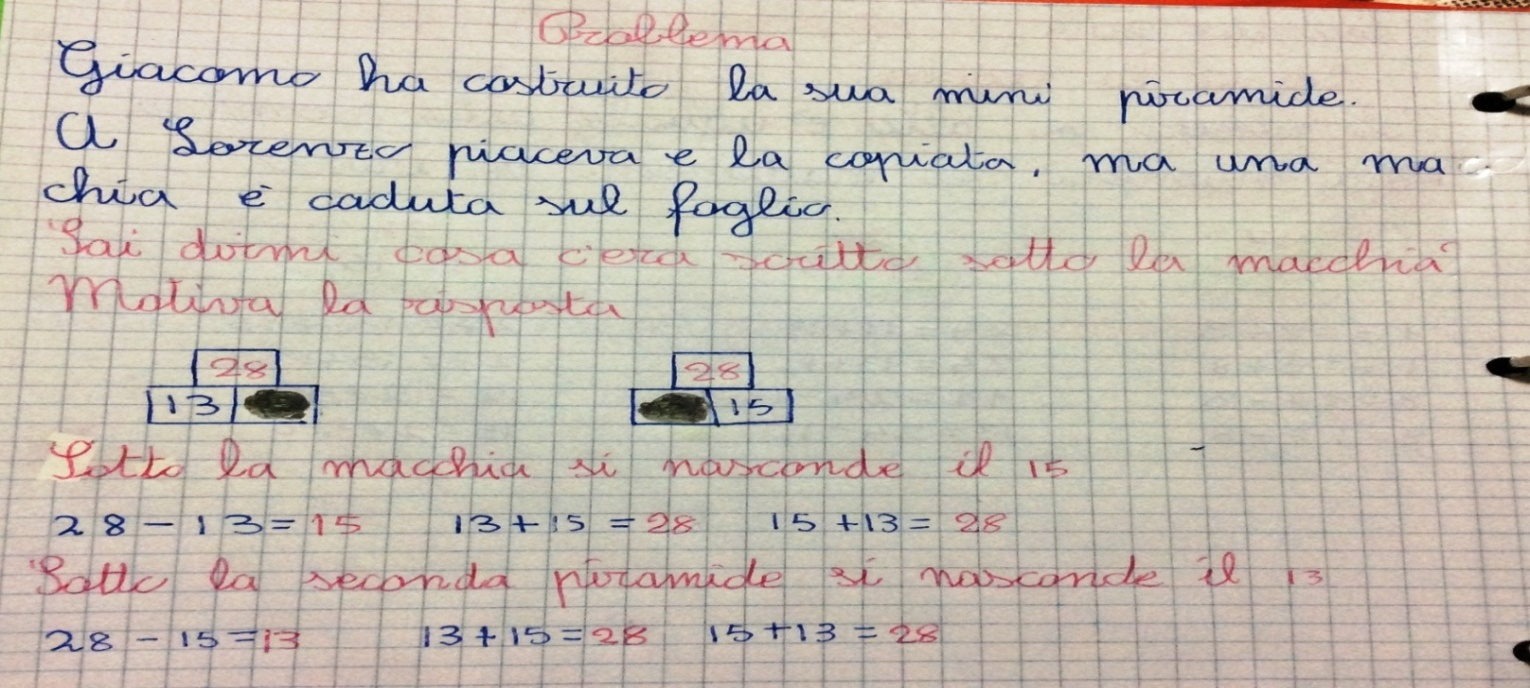 Problema
Giacomo ha costruito la sua mini piramide.
A Lorenzo piaceva e la copiata, ma una ma
chia è caduta sul foglio.
Sai dirmi cosa c'era scritto sotto la macchia?
Motiva la risposta
28 28
13 15
Sotto la macchia si nasconde il 15
28-13=15 13+15=28 15+13=28
Sotto la seconda piramide si nasconde il 13
28-15=13 13+15=28 15+13=28